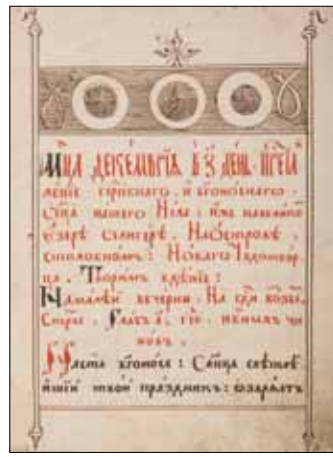 Мц҃а декемврїа в҃ з҃ день · Преста
вленїе прпⷣбнаго . и бг҃оноснаго .
ѻц҃а нашего Нила : иже на
ѻзерѣ Селигерѣ . На ѻстровѣ
столобномъ : Новаго Чюдотвор
ца . Творимъ бдѣнїе :
На малѣй вечерни . На гд҃и возва .
Стиры . Гласъ а҃ . нб҃ныхъ чи
новъ .
Наста бг҃оносе : свѣтлѣ
йшїй твой праздникъ : ѡзаряетъ